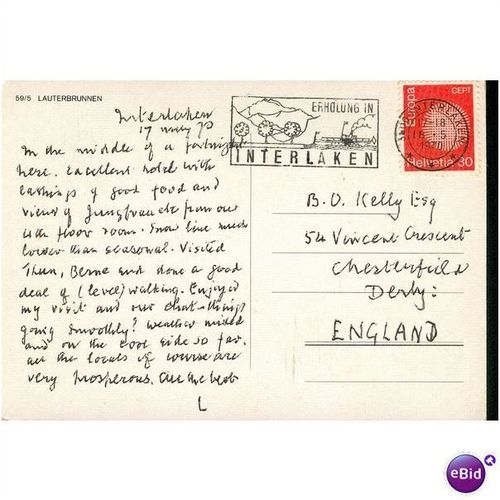 59/5 LAUTERBRUNNEN
Interlaken
17 May 70
In the middle of a fortnight
here. Excellent hotel with
lashings of good food and
views of Jungfrau etc from our
floor room. Snow line much
lower than seasonal. Visited
Thun, Berne and done a good
deal of (level) walking. Enjoyed
my visit and our chat – things
going smoothly? Weather mixed
and on the cool side so far.
All the locals of course are
very prosperous. All the best
L
ERHOLUNG IN
INTERLAKEN
Europa
CEPT
Helvetia 30
INTERLAKEN
B. O. Kelly Esq
54 Vincent Crescent
Chesterfield
Derby:
ENGLAND
eBid